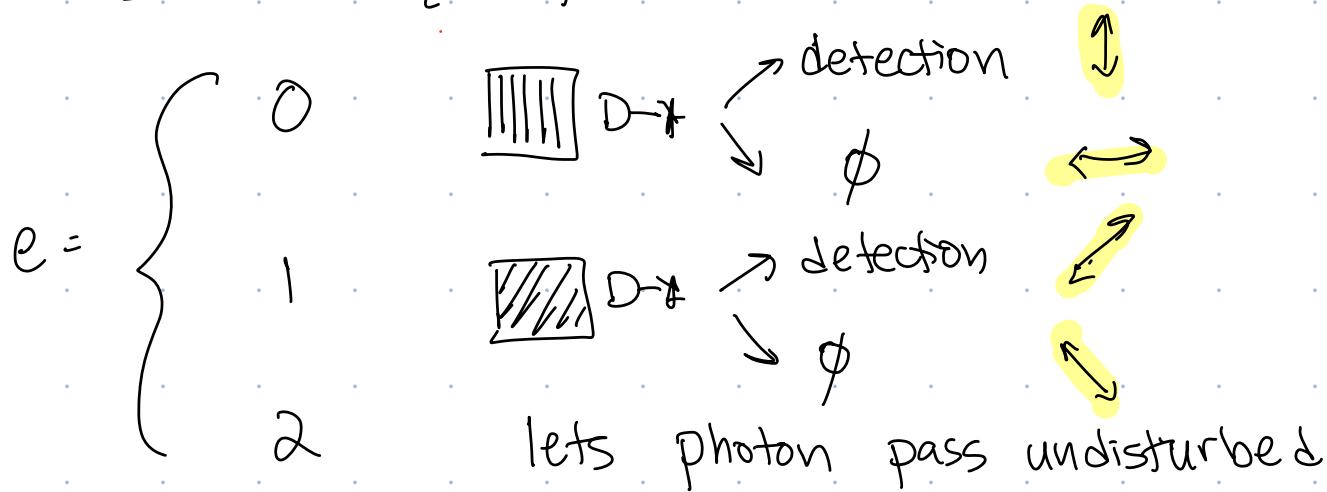 0 D detection
∅
e =
1 D detection
∅
2 lets photon pass undisturbed